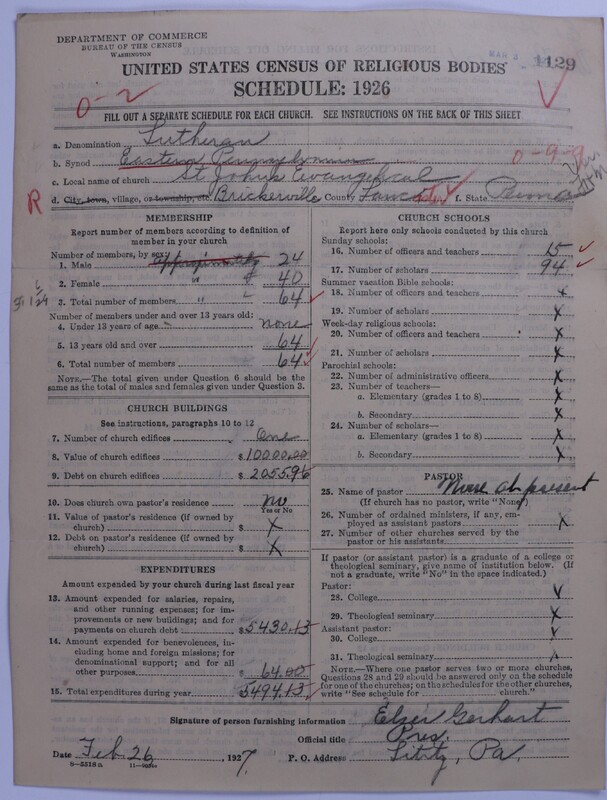 DEPARTMENT OF COMMERCE
BUREAU OF THE CENSUS
WASHINGTON
MAR 2 1129
UNITED STATES CENSUS OF RELIGIOUS BODIES
SCHEDULE: 1926
0-2
FILL OUT A SEPARATE SCHEDULE FOR EACH CHURCH. SEE INSTRUCTIONS ON THE BACK OF THIS SHEET
a. Denomination Lutheran
b. Synod Eastern Pennsylvania 0-9-
c. Local name of church St Johns Evangelical
R d. City, town, village, or township, etc. Brickerville County Lancaster f. State Penna
MEMBERSHIP
Report number of members according to definition of
member in your church
Number of members, by sex:
1. Male approximately 24
2. Female " " 40
3. Total number of members " " 64
Number of members under and over 13 years old:
4. Under 13 years of age none
5. 13 years old and over 64
6. Total number of members 64
NOTE.—The total given under Question 6 should be the
same as the total of males and females given under Question 3.
CHURCH BUILDINGS
See instructions, paragraphs 10 to 12
7. Number of church edifices One
8. Value of church edifices $ 10000.00
9. Debt on church edifices $ 2055.96
10. Does church own pastor's residence no
Yes or No
11. Value of pastor's residence (if owned by
church) $ X
12. Debt on pastor's residence (if owned by
church) $ X
EXPENDITURES
Amount expended by your church during last fiscal year
13. Amount expended for salaries, repairs,
and other running expenses; for im-
provements or new buildings; and for
payments on church debt $ 5430.13
14. Amount expended for benevolences,
including home and foreign missions; for
denominational support; and for all
other purposes $ 64.00
15. Total expenditures during year $ 5494.13
CHURCH SCHOOLS
Report here only schools conducted by this church
Sunday schools:
16. Number of officers and teachers 15
17. Number of scholars 94
Summer vacation Bible schools:
18. Number of officers and teachers X
19. Number of scholars X
Week-day religious schools:
20. Number of officers and teachers X
21. Number of scholars X
Parochial schools:
22. Number of administrative officers X
23. Number of teachers—
a. Elementary (grades 1 to 8) X
b. Secondary X
24. Number of scholars—
a. Elementary (grades 1 to 8) X
b. Secondary X
PASTOR
25. Name of pastor None at present
(If church has no pastor, write "None")
26. Number of ordained ministers, if any, em-
ployed as assistant pastors X
27. Number of other churches served by the
pastor or his assistants
If pastor (or assistant pastor) is a graduate of a college or
theological seminary, give name of institution below. (If
not a graduate, write "No" in the space indicated.)
Pastor:
28. College X
29. Theological seminary X
Assistant pastor:
30. College X
31. Theological seminary X
NOTE.—Where one pastor serves two or more churches,
Questions 28 and 29 should be answered only on the schedule
for one of the churches; on the schedules for the other churches,
write "See schedule for church."
Signature of person furnishing information Elzer Gerhart
Official title Pres.
Date Feb 26, 1927. P. O. Address Lititz, Pa.
8—5518 a